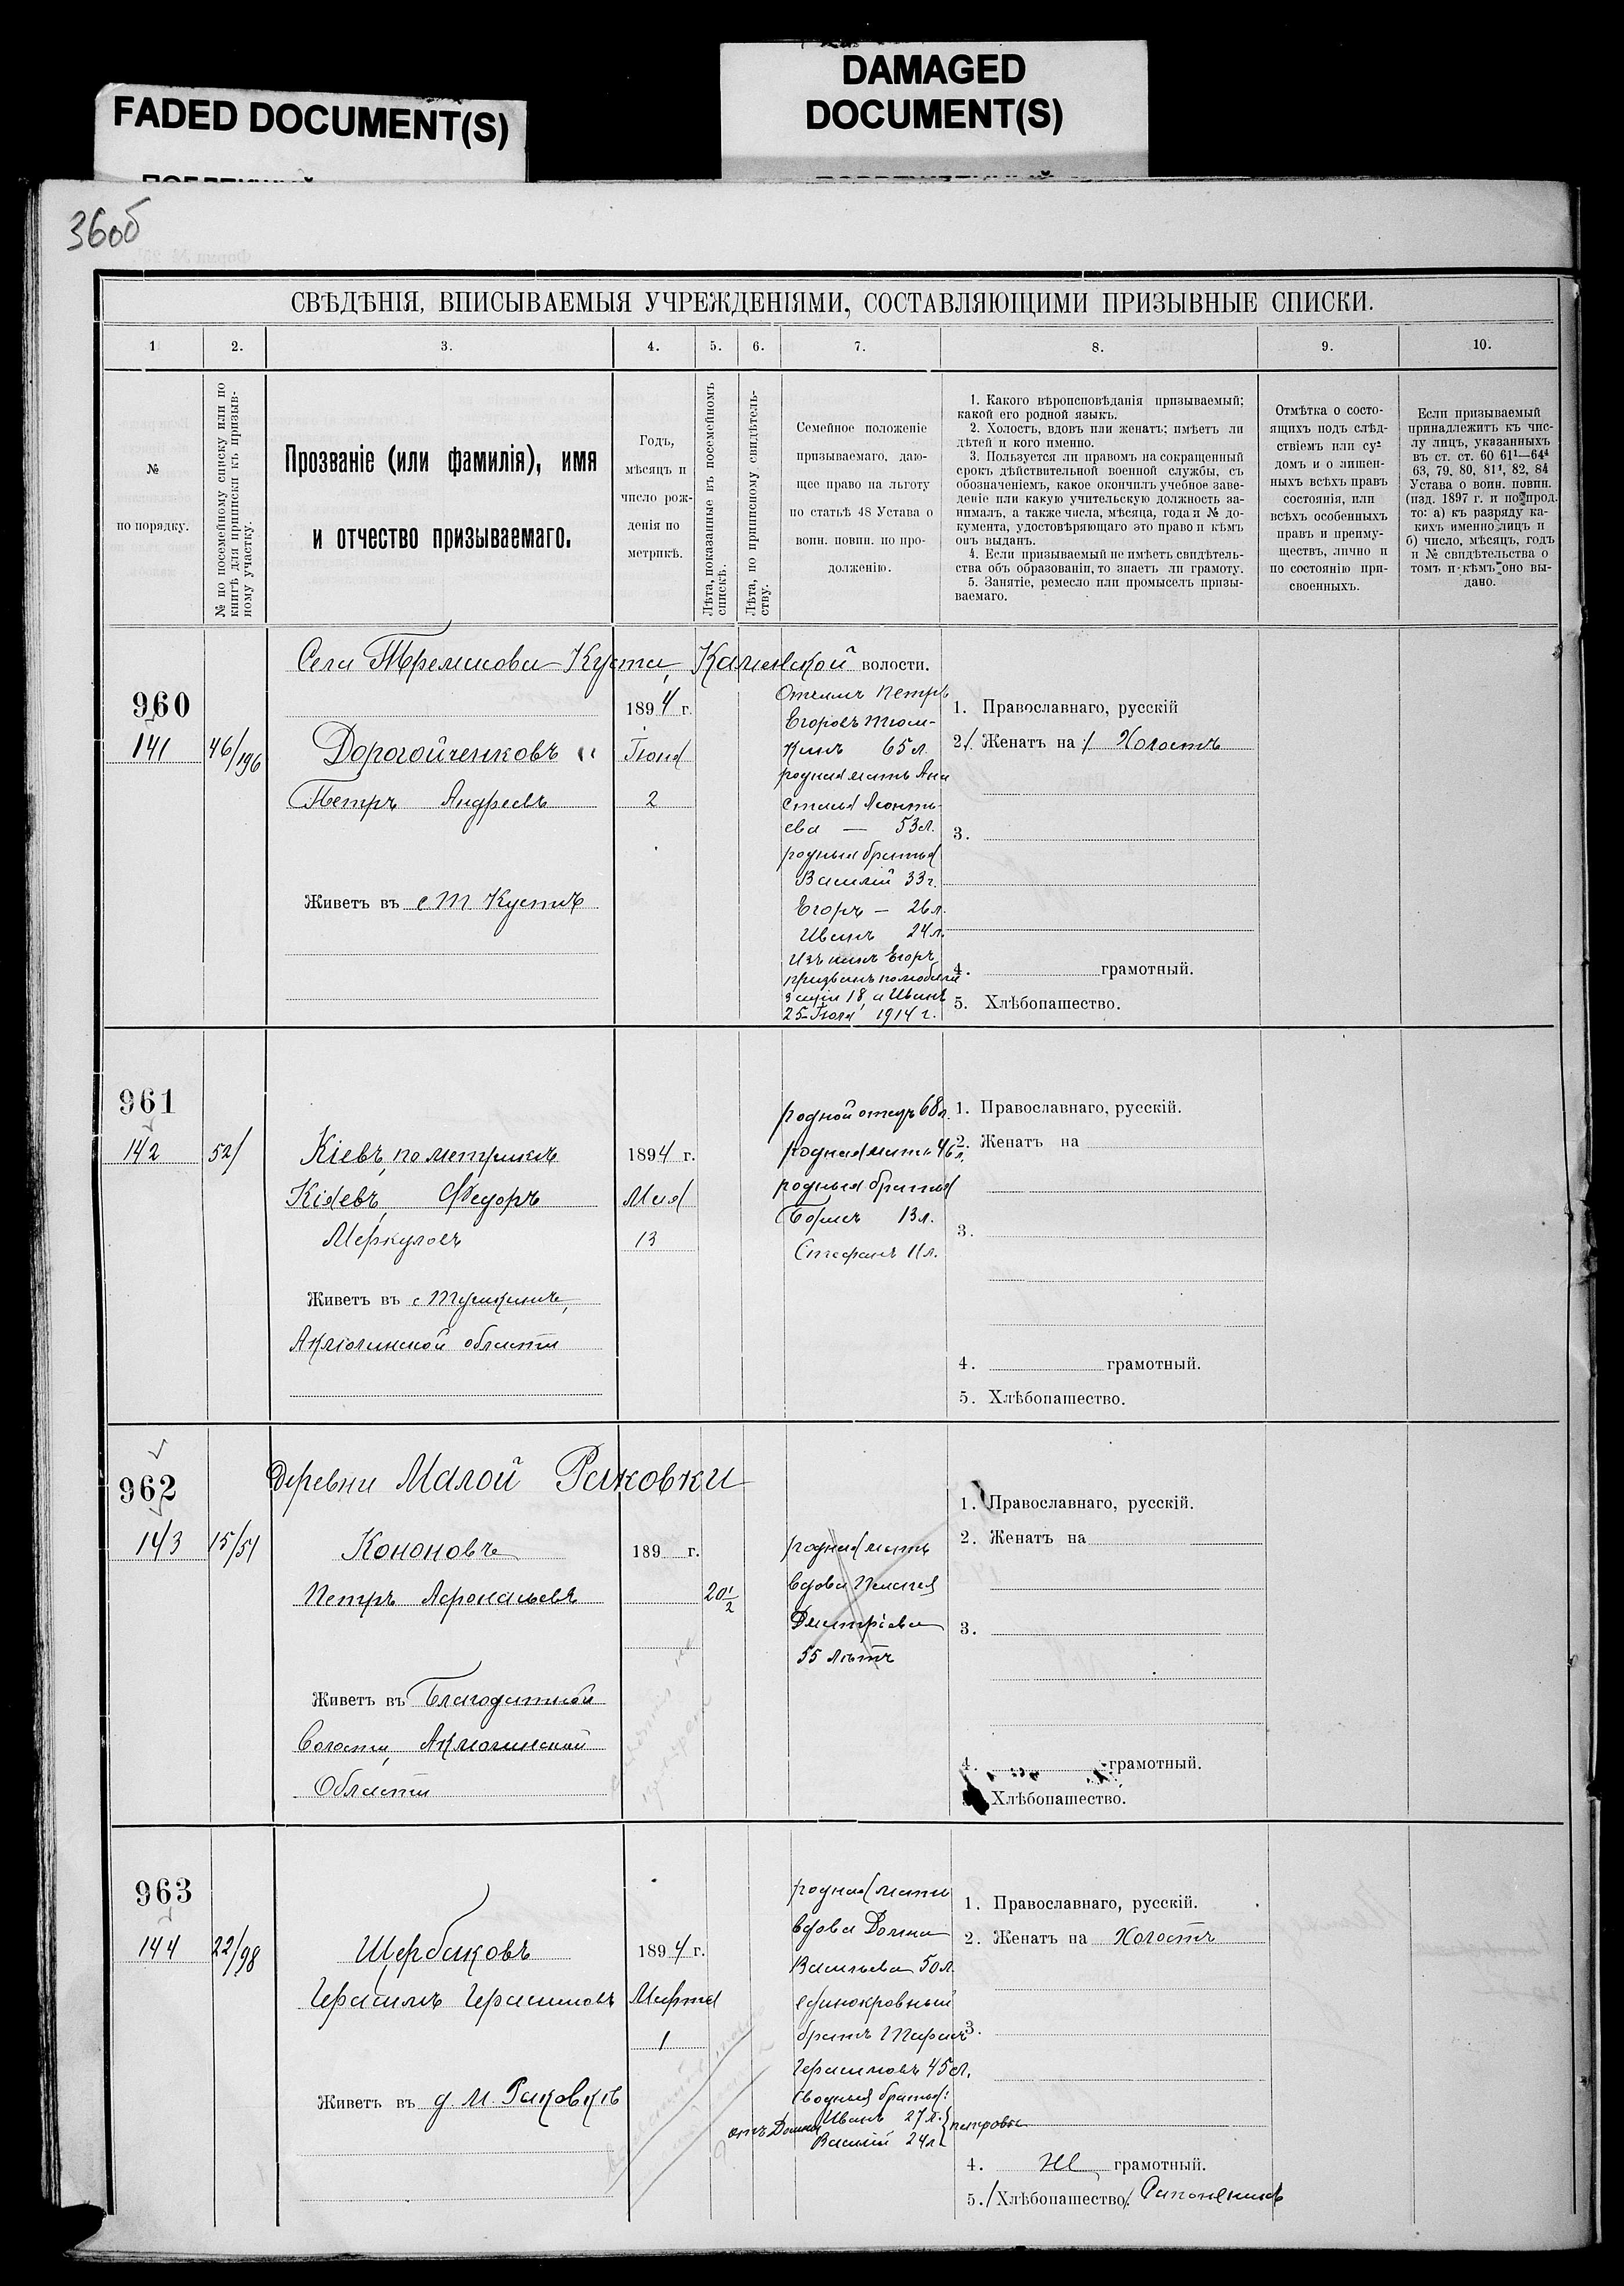 FADED DOCUMENT(S)
DAMAGED
DOCUMENT(S)
36об
СВѢДѢНІЯ, ВПИСЫВАЕМЫЯ УЧРЕЖДЕНІЯМИ, СОСТАВЛЯЮЩИМИ ПРИЗЫВНЫЕ СПИСКИ.
1 2. 3. 4. 5. 6. 7. 8. 9. 10.
№
по порядку.
№ по посемейному списку или по
книгѣ для приписки къ призыв-
ному участку.
Прозваніе (или фамилія), имя
и отчество призываемаго.
Годъ,
мѣсяцъ и
число рож-
денія по
метрикѣ.
Лѣта, показанные въ посемейномъ
спискѣ.
Лѣта, по приписному свидѣтель-
ству.
Семейное положеніе
призываемаго, даю-
щее право на льготу
по статьѣ 48 Устава о
воин. повин. по про-
долженію.
1. Какого вѣроисповѣданія призываемый;
какой его родной языкъ.
2. Холостъ, вдовъ или женатъ; имѣетъ ли
дѣтей и кого именно.
3. Пользуется ли правомъ на сокращенный
срокъ дѣйствительной военной службы, съ
обозначеніемъ, какое окончилъ учебное заве-
деніе или какую учительскую должность за-
нималъ, а также числа, мѣсяца, года и № до-
кумента, удостовѣряющаго это право и кѣмъ
онъ выданъ.
4. Если призываемый не имѣетъ свидѣтель-
ства объ образованіи, то знаетъ ли грамоту.
5. Занятіе, ремесло или промыселъ призы-
ваемаго.
Отмѣтка о состо-
ящихъ подъ слѣд-
ствіемъ или су-
домъ и о лишен-
ныхъ всѣхъ правъ
состоянія, или
всѣхъ особенныхъ
правъ и преиму-
ществъ, лично и
по состоянію при-
своенныхъ.
Если призываемый
принадлежитъ къ чис-
лу лицъ, указанныхъ
въ ст. ст. 60 61¹—64⁴
63, 79. 80, 81¹, 82, 84
Устава о воин. повин.
(изд. 1897 г. и по прод.
то: а) къ разряду ка-
кихъ именно лицъ и
б) число, мѣсяцъ, годъ
и № свидѣтельства о
томъ и кѣмъ оно вы-
дано.
Села Тремасова Куста, Каменской волости.
960
141 46/196
Дорогойченковъ
Петръ Андреевъ
Живетъ въ с Т. Кустѣ
1894 г.
Іюня
2
Отчимъ Петръ
Егоровъ Тюм-
кинъ 65 л.
родная мать Ана
стасія Леонть-
ева — 53 л.
родные братья
Василій 33 г.
Егоръ — 26 л.
Иванъ 24 л.
Изъ нихъ Егоръ
призванъ по мобили
заціи 18, а Иванъ
25 Іюля 1914 г.
1. Православнаго, русскій
2/ Женатъ на / Холостъ
3.
4. грамотный.
5. Хлѣбопашество.
961
142 52/
Кіевъ, по метрикѣ
Кіяевъ, Федоръ
Меркуловъ
Живетъ въ с
Акмолинской области
1894 г.
Мая
13
родной отецъ 68 л.
родная мать 46 л.
родные братья
Борисъ 13 л.
Стефанъ 11 л.
1. Православнаго, русскій.
2. Женатъ на
3.
4. грамотный.
5. Хлѣбопашество.
Деревни Малой Раковки
962
143 15/51
Кононовъ
Петръ Афонасьевъ
Живетъ въ Благодатной
Волости, Акмолинской
Области
189 г.
20½
родная мать
вдова Пелагея
Дмитріева
55 лѣтъ
1. Православнаго, русскій.
2. Женатъ на
3.
4. грамотный.
Хлѣбопашество.
963
144 22/98
Щербаковъ
Герасимъ Герасимовъ
Живетъ въ д. М. Раковкѣ
1894 г.
Марта
1
родная мать
вдова Домна
Васильева 50 л.
единокровный
братъ
Герасимовъ 45 л.
Сводные братья:
отъ Домны Иванъ 27 л. } Петровы
Василій 24 л.
1. Православнаго, русскій.
2. Женатъ на Холостъ
3.
4. не грамотный.
5. / Хлѣбопашество/. Сапожникъ